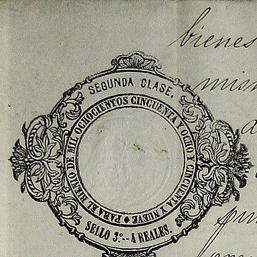 bienes
SEGUNDA CLASE.
PARA EL BIENIO DE MIL OCHOCIENTOS CINCUENTA Y OCHO Y CINCUENTA Y NUEVE
SELLO 3.º--4 REALES.